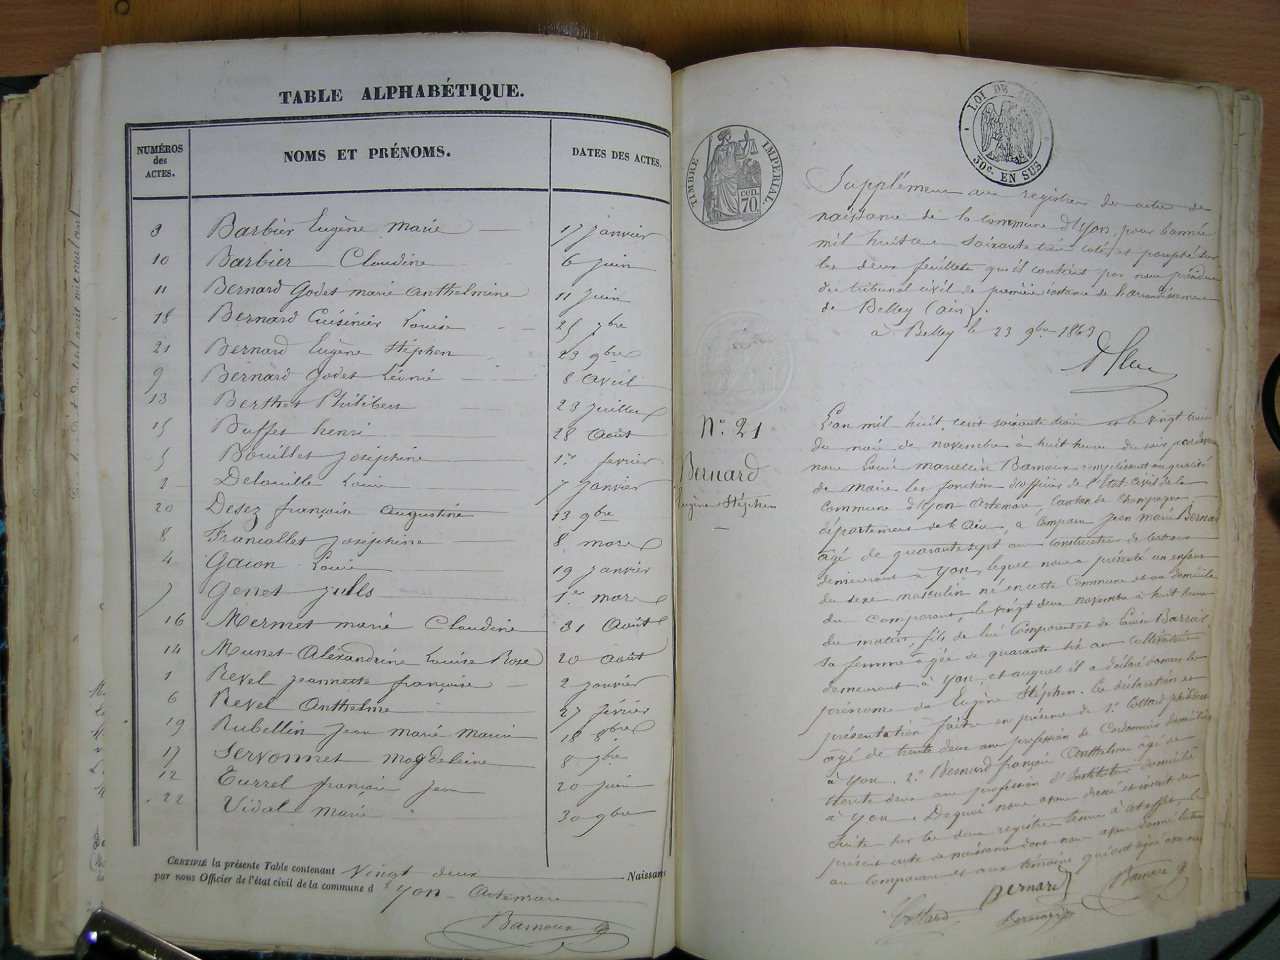 TABLE ALPHABÉTIQUE.
NUMÉROS
des
ACTES.
NOMS ET PRÉNOMS.
DATES DES ACTES.
3 Barbier Eugène Marie 17 janvier
10 Barbier Claudine 6 juin
11 Bernard Godet marie anthelmine 11 juin
18 Bernard Cuisinier Louise 25 7bre
21 Bernard Eugène Stéphen 23 9bre
9 Bernard Godet 8 avril
13 Berthet Philibert 23 juillet
15 Buffet henri 28 Août
5 Bouillet Joséphine 1er fevrier
2 Louise 7 janvier
20 Desez françoise Augustine 13 9bre
8 Francillet joséphine 8 mars
4 Louis 19 janvier
7 Genet jules 1er mars
16 Mermet marie Claudine 31 Août
14 Munet Alexandrine Louise Rose 20 Août
1 Revel jeannette françoise 2 janvier
6 Revel Anthelme 27 février
19 Rubellin jean marie 18 8bre
17 Servonnet Magdeleine 8 7bre
12 françois jean 20 juin
22 Vidal Marie 30 9bre
CERTIFIÉ la présente Table contenant Vingt deux Naissan
par nous Officier de l'état civil de la commune d'Yon Artemare
Barnoux
TIMBRE IMPERIAL.
70 cen.
LOI DE
50c. EN SUS
Supplément aux registres des actes de
naissance de la commune d'Yon, pour l'année
mil huit cent soixante trois coté et paraphé sur
les deux feuillets qu'il contient par nous président
du tribunal civil de première instance de l'arrondissement
de Belley (ain).
à Belley le 23 9bre 1863
N° 21
Bernard
Eugène Stéphen
L'an mil huit cent soixante trois et le vingt trois
du mois de novembre à huit heures du soir pardevant
nous Louis Marcellin Barnoux remplissant en qualité
de maire les fonctions d'officier de l'état civil de la
commune d'Yon Artemare, canton de Champagne
département de l'Ain, a comparu jean marie Bernard
âgé de quarante sept ans constructeur de
demeurant à Yon, lequel nous a présenté un enfant
du sexe masculin né en cette Commune et au domicile
du comparant, le vingt deux novembre à huit heures
du matin, fils de lui Comparant et de Louise Barras
sa femme âgée de quarante six ans cultivatrice
demeurant à Yon, et auquel il a déclaré donner les
prénoms de Eugène Stéphen. Ces déclaration et
présentation faites en présence de 1° Collard philibert
âgé de trente deux ans profession de Cordonnier domicilié
à Yon. 2° Bernard françois Anthelme âgé de
trente deux ans profession d'Instituteur domicilié
à Yon. De quoi nous avons dressé et inscrit de
suite sur les deux registres tenus à cet effet, le
présent acte de naissance dont nous avons donné lecture
au comparant et aux témoins qui ont signé avec nous
Collard
Bernard
Bernard
Barnoux